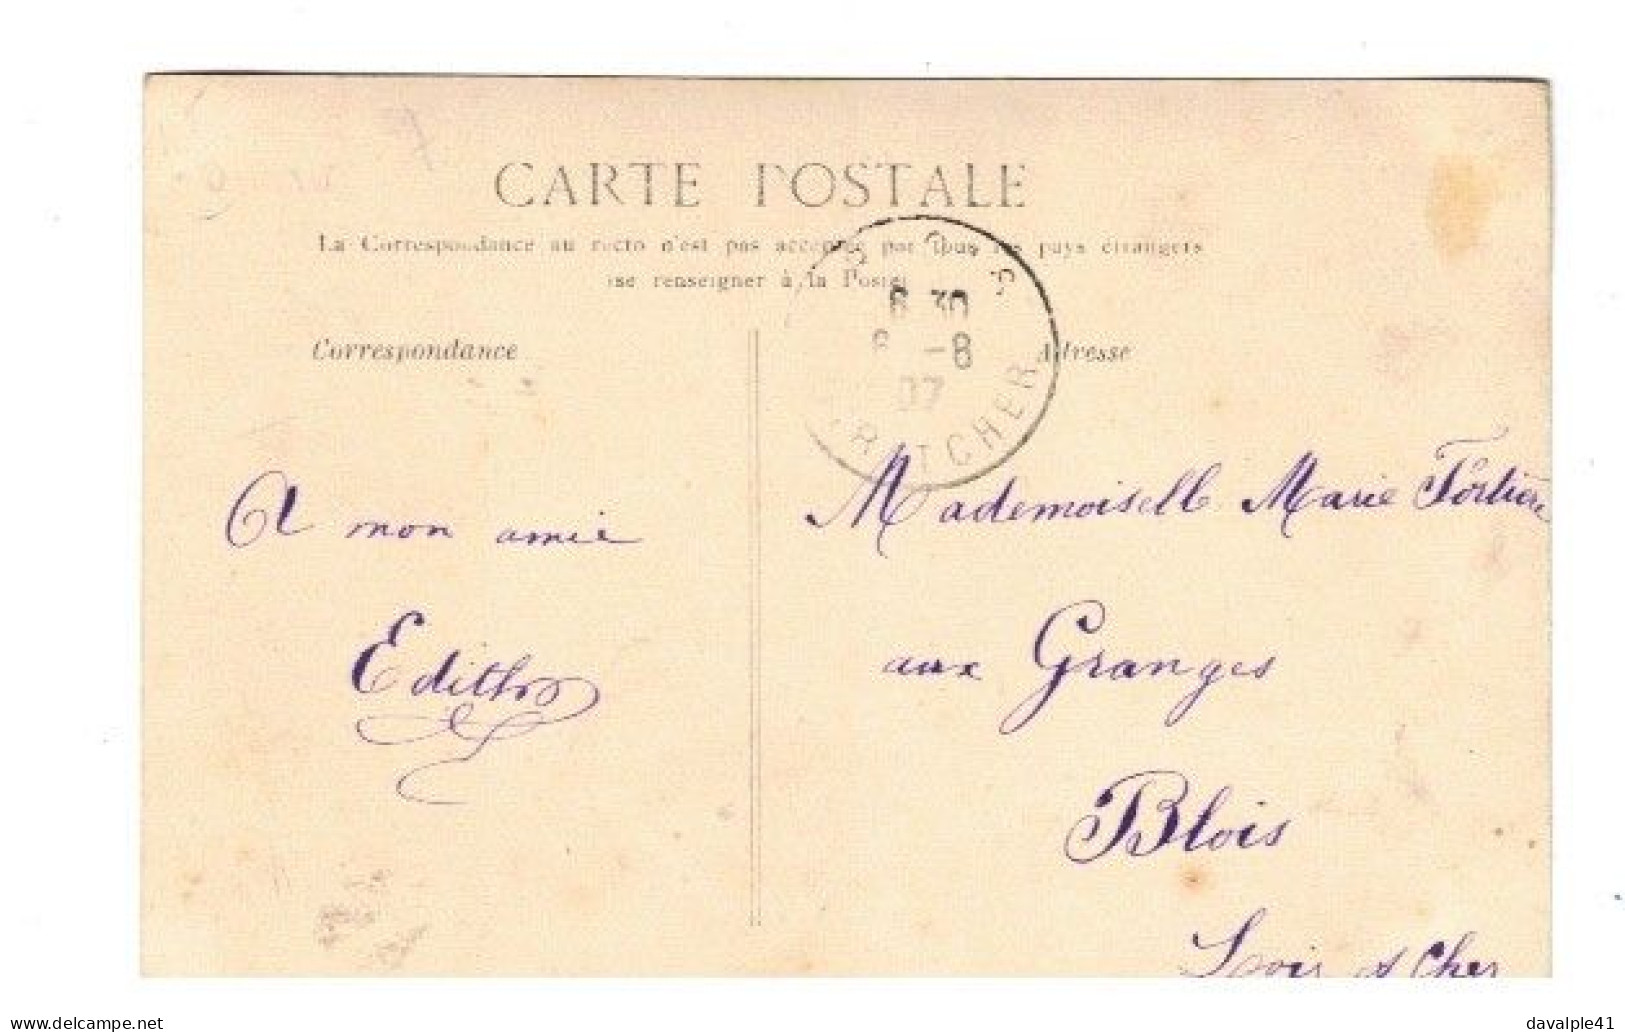 CARTE POSTALE
La Correspondance au recto n'est pas acceptée par tous les pays étrangers
(se renseigner à la Poste)
Correspondance
Adresse
6 30
8 -8
07
R ET CHER
A mon amie
Edith
Mademoiselle Marie
aux Granges
Blois
Loir et Cher
www.delcampe.net
davalple41